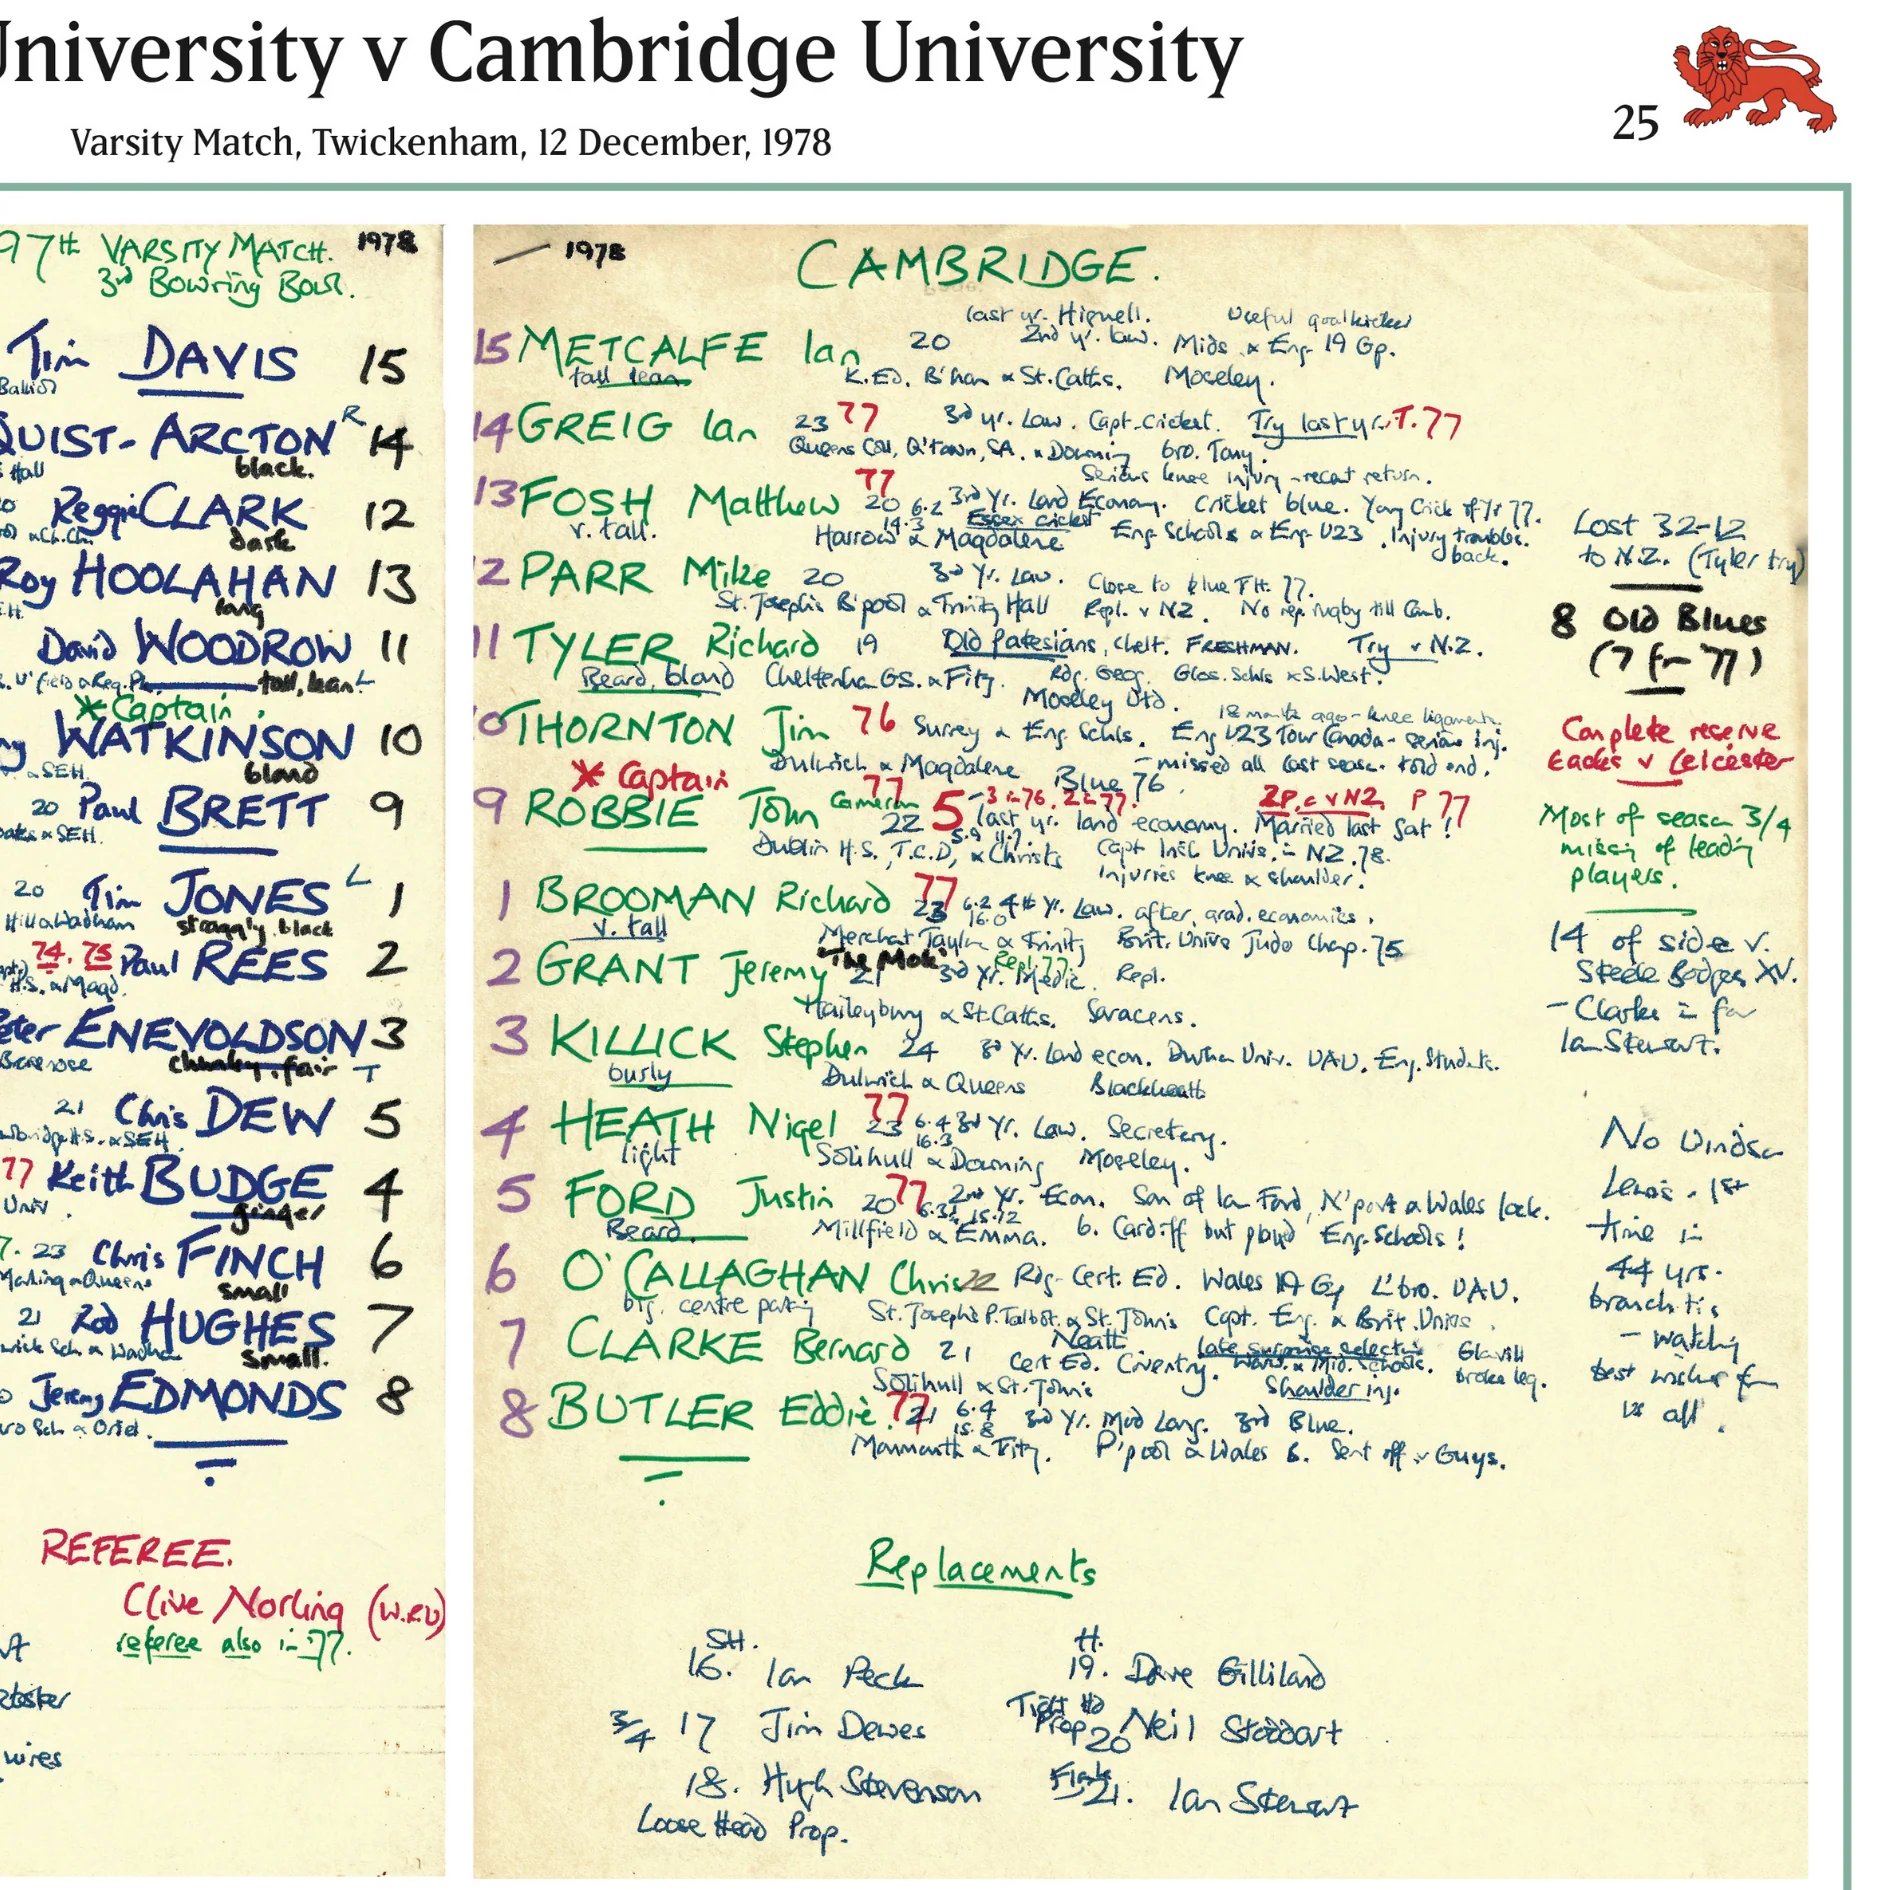 University v Cambridge University
25
Varsity Match, Twickenham, 12 December, 1978
97th VARSITY MATCH. 1978
3rd Bowring Bowl.
Tim DAVIS 15
Balliol
QUIST-ARCTON R 14
Hall black.
Reggie CLARK 12
Ch.Ch. dark
Roy HOOLAHAN 13
long
David WOODROW 11
tall, lean L
* Captain.
WATKINSON 10
SEH. blond
20 Paul BRETT 9
SEH.
20 Tim JONES L 1
Wadham straggly black
74, 75 Paul REES 2
H.S. & Magd.
Peter ENEVOLDSON 3
chunky, fair T
21 Chris DEW 5
H.S. & SEH.
77 Keith BUDGE 4
Univ. ginger
23 Chris FINCH 6
Queens small
21 Rod HUGHES 7
Sch & Wadham small.
Jeremy EDMONDS 8
Sch & Oriel.
REFEREE.
Clive Norling (W.R.U)
referee also in 77.
1978
CAMBRIDGE.
last yr. Hignell. Useful goalkicker
15 METCALFE Ian 20 2nd yr. law. Mids & Eng 19 Gp.
tall lean K.Ed. B'ham & St.Caths. Moseley.
14 GREIG Ian 23 77 3rd yr. Law. Capt. Cricket. Try last yr. T.77
Queens Coll, Q'town, SA. & Downing bro. Tony.
Serious knee injury - recent return.
13 FOSH Matthew 77 20 6.2 14.3 3rd Yr. Land Economy. Cricket blue. Yong Crick of Yr 77.
v. tall. Harrow & Magdalene Essex cricket Eng Schools & Eng U23. Injury troubles. back.
12 PARR Mike 20 3rd Yr. Law. Close to blue FH. 77.
St. Joseph's B'pool & Trinity Hall Repl. v NZ. No rep rugby till Camb.
11 TYLER Richard 19 Old Patesians, Chelt. FRESHMAN. Try v N.Z.
Beard, blond Cheltenham GS. & Fitz. Rdg. Geog. Glos. Schls & S.West.
Moseley Utd.
10 THORNTON Jim 76 Surrey & Eng Schls. Eng U23 Tour Canada - serious inj.
18 months ago - knee ligaments.
Dulwich & Magdalene - missed all last season. told end.
* Captain Blue 76.
9 ROBBIE John Cameron 77 22 5 - 3 in 76, 2 in 77. 2P, c v NZ. P 77
last yr. land economy. Married last Sat!
Dublin H.S., T.C.D, & Christs 5.9 11.7 Capt Irish Univs. in NZ.78.
Injuries knee & shoulder.
1 BROOMAN Richard 77 23 6.2 16.0 4th Yr. Law. after grad. economics.
v. tall Merchant Taylor & Trinity Brit. Univs Judo Chap. 75
2 GRANT Jeremy "The Mole" 21 Repl.77 3rd Yr. Medic. Repl.
Haileybury & St.Caths. Saracens.
3 KILLICK Stephen 24 3rd Yr. Land econ. Durham Univ. UAU. Eng. Students.
burly Dulwich & Queens Blackheath
4 HEATH Nigel 77 23 6.4 16.3 3rd Yr. Law. Secretary.
light Solihull & Downing Moseley.
5 FORD Justin 20 77 6.3½ 15.12 2nd Yr. Econ. Son of Ian Ford, N'port & Wales lock.
Beard. Millfield & Emma. b. Cardiff but played Eng. Schools!
6 O'CALLAGHAN Chris 22 Rdg. Cert. Ed. Wales 19 Gp L'boro. UAU.
big, centre parting St. Josephs P.Talbot. & St. John's Capt. Eng. & Brit. Univs.
7 CLARKE Bernard 21 Neath late surprise selection Glanvill broke leg.
Cert Ed. Coventry. Warks. & Mid. Schools.
Solihull & St. John's Shoulder inj.
8 BUTLER Eddie 77 21 6.4 15.8 3rd Yr. Mod Lang. 3rd Blue.
Monmouth & Fitz. P'pool & Wales B. Sent off v Guys.
Lost 32-12
to N.Z. (Tyler try)
8 Old Blues
(7 fr 77)
Complete reserve
backs v Leicester
Most of season 3/4
missing of leading
players.
14 of side v.
Steele Bodger XV.
- Clarke in for
Ian Stewart.
No Windsor
Lewis. 1st
time in
44 yrs.
bronchitis
- watching
best wishes from
us all.
Replacements
SH.
16. Ian Peck
3/4 17 Jim Dewes
18. Hugh Stevenson
Loose Head Prop.
H.
19. Dave Gilliland
Tight Hd
Prop 20 Neil Stoddart
Flank
21. Ian Stewart